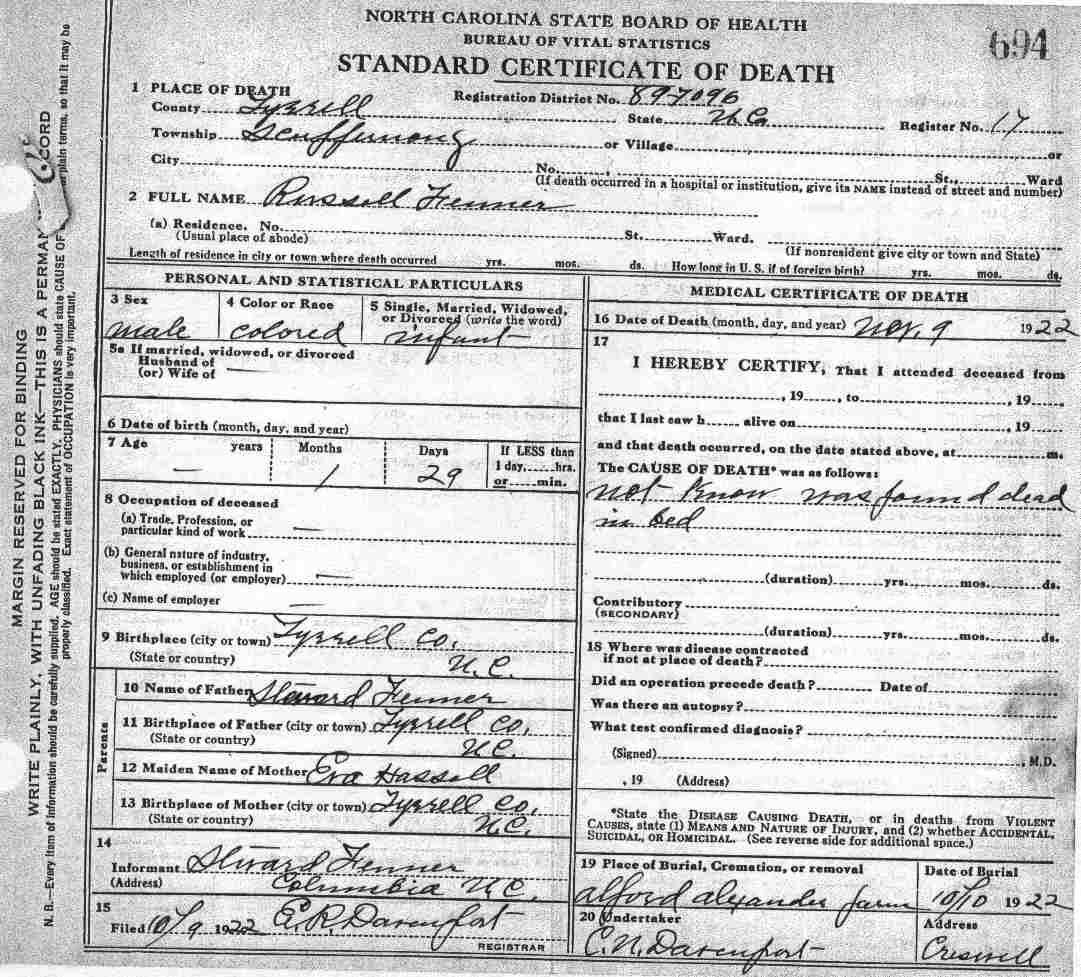 NORTH CAROLINA STATE BOARD OF HEALTH
BUREAU OF VITAL STATISTICS
694
STANDARD CERTIFICATE OF DEATH
1 PLACE OF DEATH
Registration District No. 897096
County Tyrrell State N.C. Register No. 17
Township Scuppernong or Village or
City No. , St., Ward
(If death occurred in a hospital or institution, give its NAME instead of street and number)
2 FULL NAME Russell Fenner
(a) Residence. No. St. Ward.
(Usual place of abode) (If nonresident give city or town and State)
Length of residence in city or town where death occurred yrs. mos. ds. How long in U. S. if of foreign birth? yrs. mos. ds.
PERSONAL AND STATISTICAL PARTICULARS
3 Sex
male
4 Color or Race
colored
5 Single, Married, Widowed, or Divorced (write the word)
infant
5a If married, widowed, or divorced
Husband of
(or) Wife of —
6 Date of birth (month, day, and year)
7 Age years Months Days If LESS than
1 day, hrs.
— 1 29 or min.
8 Occupation of deceased
(a) Trade, Profession, or
particular kind of work —
(b) General nature of industry,
business, or establishment in
which employed (or employer) —
(c) Name of employer —
9 Birthplace (city or town) Tyrrell Co.
(State or country) N.C.
Parents
10 Name of Father Steward Fenner
11 Birthplace of Father (city or town) Tyrrell Co.
(State or country) N.C.
12 Maiden Name of Mother Eva Hassell
13 Birthplace of Mother (city or town) Tyrrell Co.
(State or country) N.C.
14
Informant Steward Fenner
(Address) Columbia N.C.
15
Filed 10/9 1922 E. R. Davenport
REGISTRAR
MEDICAL CERTIFICATE OF DEATH
16 Date of Death (month, day, and year) Nov. 9 1922
17
I HEREBY CERTIFY, That I attended deceased from
, 19 , to , 19
that I last saw h alive on , 19
and that death occurred, on the date stated above, at m.
The CAUSE OF DEATH* was as follows:
not know was found dead
in bed
(duration) yrs. mos. ds.
Contributory
(SECONDARY)
(duration) yrs. mos. ds.
18 Where was disease contracted
if not at place of death?
Did an operation precede death? Date of
Was there an autopsy?
What test confirmed diagnosis?
(Signed) , M.D.
, 19 (Address)
*State the DISEASE CAUSING DEATH, or in deaths from VIOLENT
CAUSES, state (1) MEANS AND NATURE OF INJURY, and (2) whether ACCIDENTAL,
SUICIDAL, OR HOMICIDAL. (See reverse side for additional space.)
19 Place of Burial, Cremation, or removal
alford alexander farm
Date of Burial
10/10 1922
20 Undertaker
C. N. Davenport
Address
Creswell
MARGIN RESERVED FOR BINDING
WRITE PLAINLY, WITH UNFADING BLACK INK—THIS IS A PERMA CORD
N. B.—Every item of information should be carefully supplied. AGE should be stated EXACTLY. PHYSICIANS should state CAUSE OF plain terms, so that it may be
properly classified. Exact statement of OCCUPATION is very important.